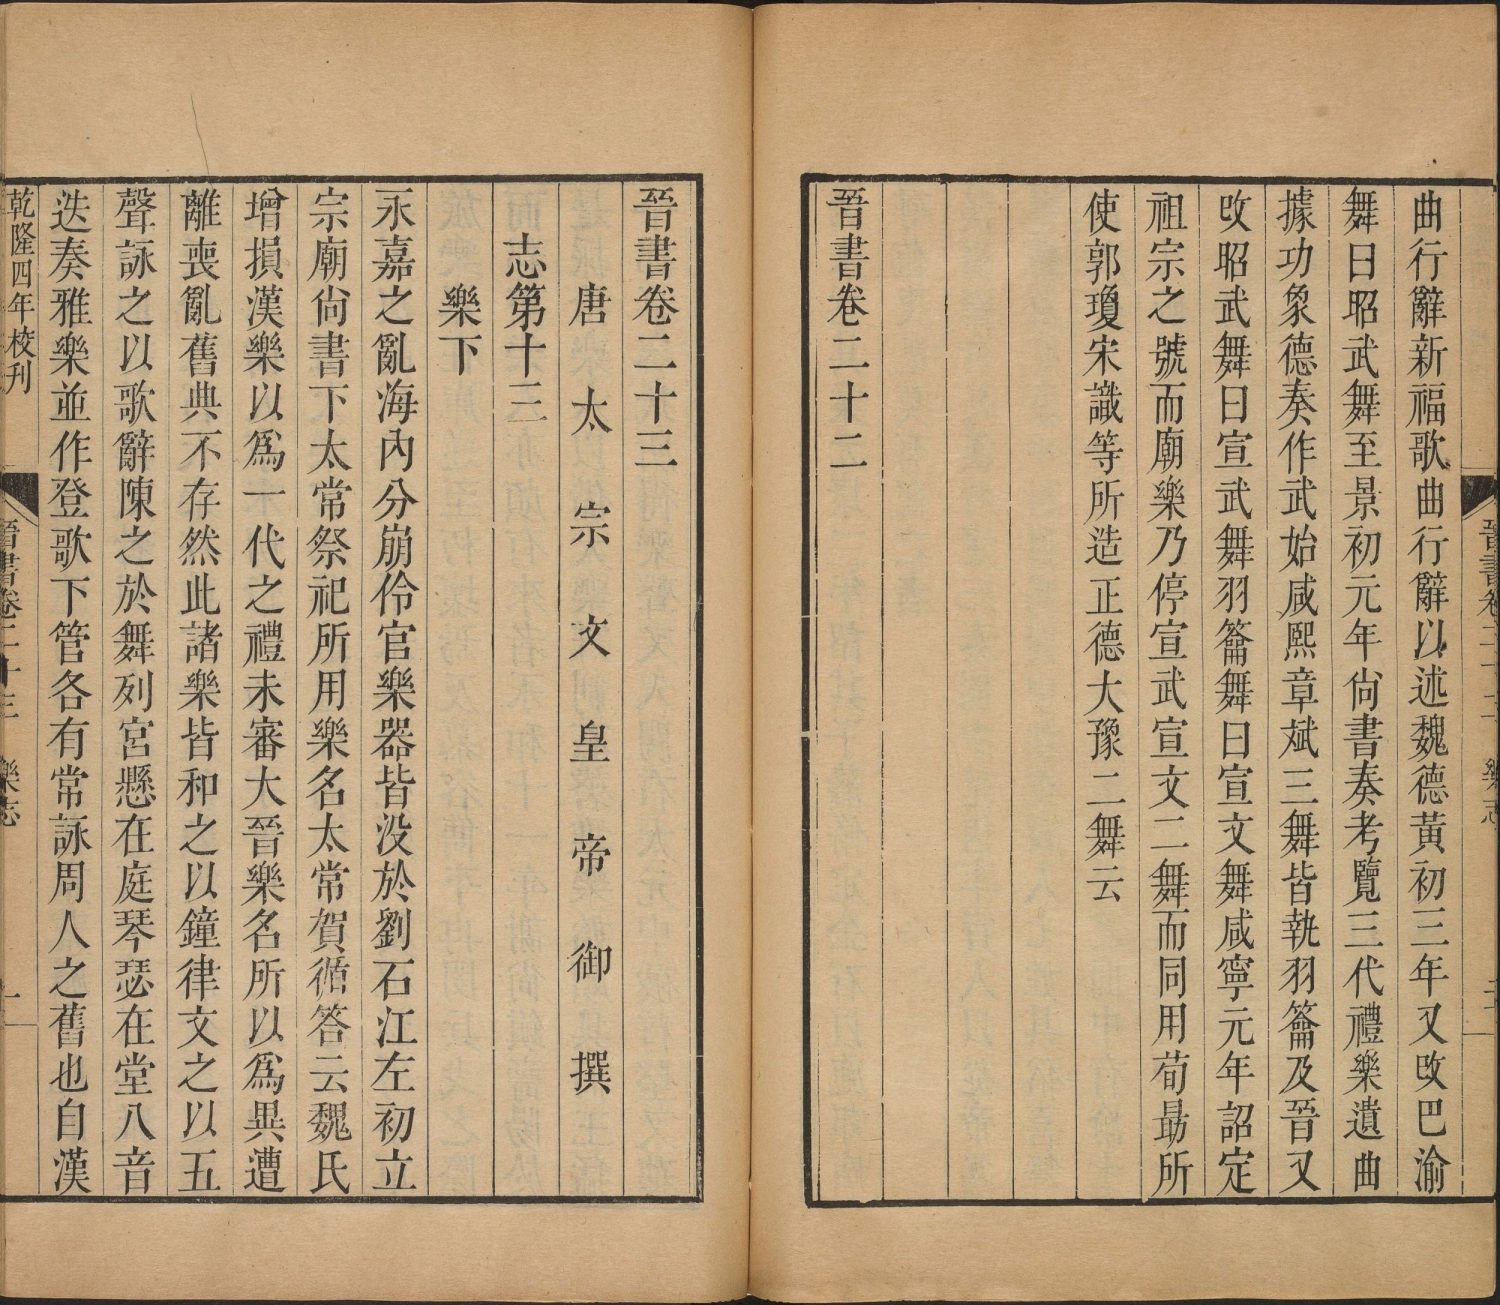 晉書卷二十二 樂志
曲行辭新福歌曲行辭以述魏德黃初三年又改巴渝
舞曰昭武舞至景初元年尙書奏考覽三代禮樂遺曲
據功象德奏作武始咸熙章斌三舞皆執羽籥及晉又
改昭武舞曰宣武舞羽籥舞曰宣文舞咸寧元年詔定
祖宗之號而廟樂乃停宣武宣文二舞而同用荀勗所
使郭瓊宋識等所造正德大豫二舞云
晉書卷二十二
晉書卷二十三
唐太宗文皇帝御撰
志第十三
樂下
永嘉之亂海內分崩伶官樂器皆沒於劉石江左初立
宗廟尙書下太常祭祀所用樂名太常賀循答云魏氏
增損漢樂以爲一代之禮未審大晉樂名所以爲異遭
離喪亂舊典不存然此諸樂皆和之以鐘律文之以五
聲詠之以歌辭陳之於舞列宮懸在庭琴瑟在堂八音
迭奏雅樂並作登歌下管各有常詠周人之舊也自漢
乾隆四年校刊
晉書卷二十三 樂志 一